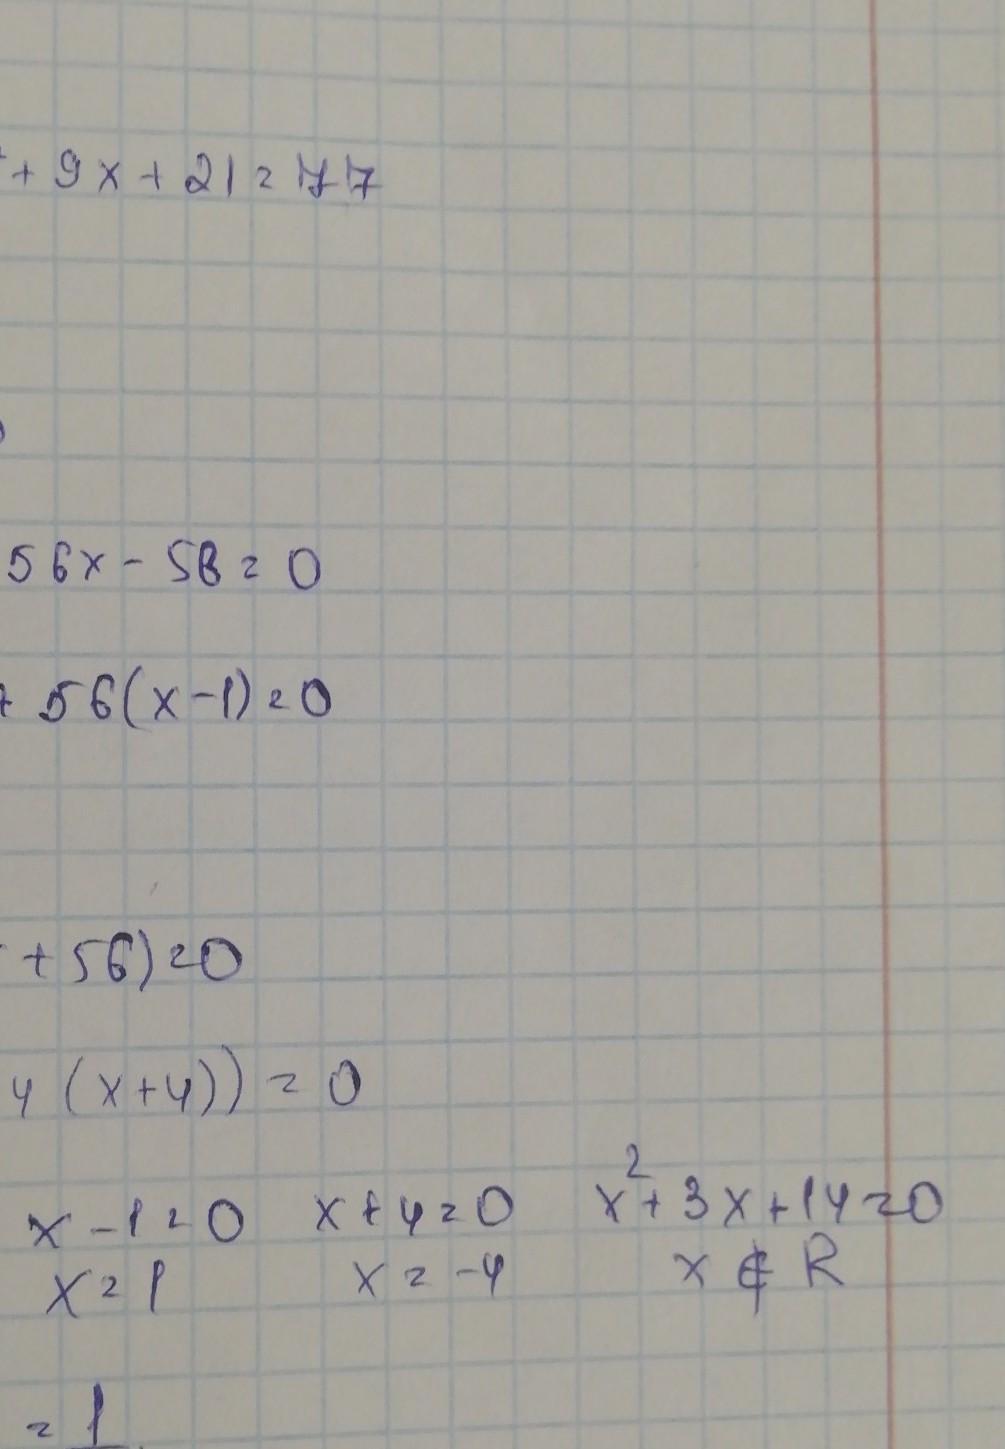 + 9x + 21 = 77
56x - 56 = 0
+ 56(x - 1) = 0
+ 56) = 0
4 (x + 4)) = 0
x - 1 = 0 x + 4 = 0 x² + 3x + 14 = 0
x = 1 x = -4 x ∉ R
= 1